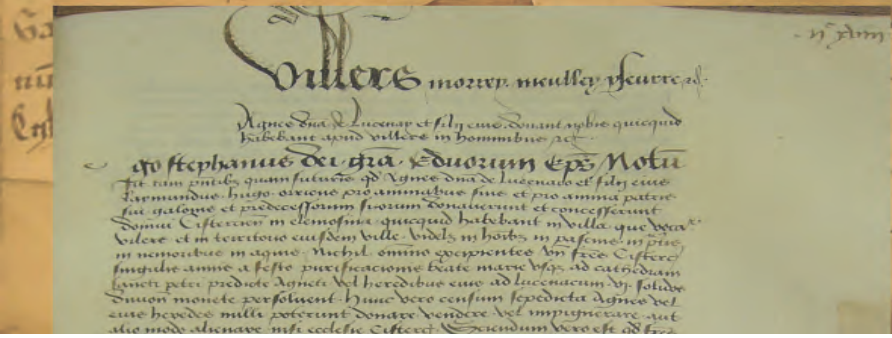 nº xviii
Villers morrey meulley pseurre
Agnes dna de Lucenay et filij eius donant nobis quicquid
habebant apud villers in hominibus
go stephanus dei gra Eduorum Eps Notu
sit tam pntibz quam futuris qd Agnes dna de Lucenaco et filij eius
Raymundus hugo pro animabus suis et pro anima patris
sui galonis et predecessorum suorum donaverunt et concesserunt
domui Cisterciensi in elemosina quicquid habebant in villa que voca
vilers et in territorio eiusdem ville videlz in hoibz in pascuis in ptis
in nemoribus in aquis Nichil omnino excipientes fres Cisterc
singulis annis a festo purificacionis beate marie usqz ad cathedram
sancti petri predicte Agneti vel heredibus eius ad lucenacum vj solidos
divion monete persolvent Hunc vero censum sepedicta Agnes vel
eius heredes nulli poterunt donare vendere vel impignerare aut
alio modo alienare nisi ecclesie Cisterc Sciendum vero est qd fres